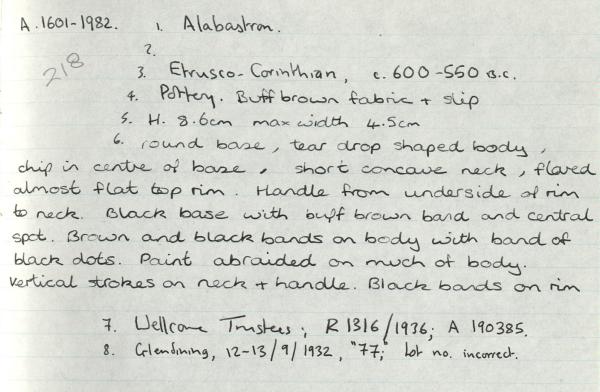 A.1601-1982. 1. Alabastron.
2.
218
3. Etrusco-Corinthian, c. 600-550 B.C.
4. Pottery. Buff brown fabric + slip
5. H. 8.6cm max width 4.5cm
6. round base, tear drop shaped body,
chip in centre of base, short concave neck, flared
almost flat top rim. Handle from underside of rim
to neck. Black base with buff brown band and central
spot. Brown and black bands on body with band of
black dots. Paint abraided on much of body.
Vertical strokes on neck + handle. Black bands on rim
7. Wellcome Trustees; R 1316/1936; A 190385.
8. Glendining, 12-13/9/1932, "77;" Lot no. incorrect.